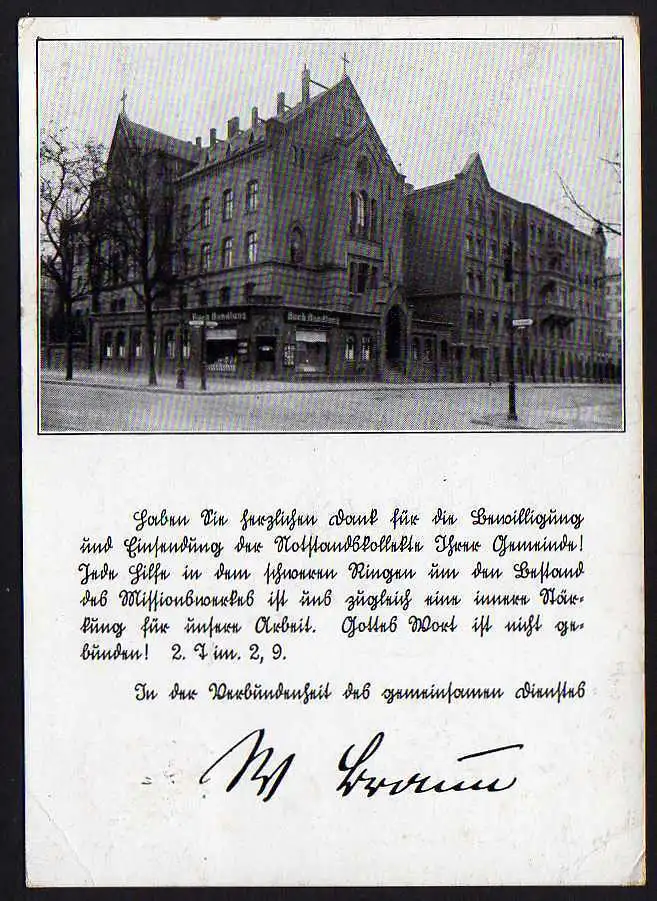 Buch Handlung
Buch Handlung
Haben Sie herzlichen Dank für die Bewilligung
und Einsendung der Notstandskollekte Ihrer Gemeinde!
Jede Hilfe in dem schweren Ringen um den Bestand
des Missionswerkes ist uns zugleich eine innere Stär-
kung für unsere Arbeit. Gottes Wort ist nicht ge-
bunden! 2. Tim. 2, 9.
In der Verbundenheit des gemeinsamen Dienstes
W Braun